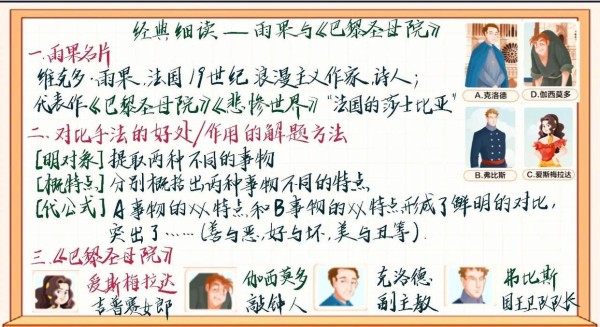 经典细读——雨果与《巴黎圣母院》
一.雨果名片
维克多·雨果.法国19世纪浪漫主义作家.诗人；
代表作《巴黎圣母院》《悲惨世界》"法国的莎士比亚"
二.对比手法的好处/作用的解题方法
[明对象]提取两种不同的事物
[概特点]分别概括出两种事物不同的特点
[代公式]A事物的××特点和B事物的××特点形成了鲜明的对比,
突出了……(善与恶,好与坏,美与丑等).
A.克洛德
D.伽西莫多
B.弗比斯
C.爱斯梅拉达
三.《巴黎圣母院》
爱斯梅拉达
吉普赛女郎
伽西莫多
敲钟人
克洛德.
副主教
弗比斯
国王卫队队长